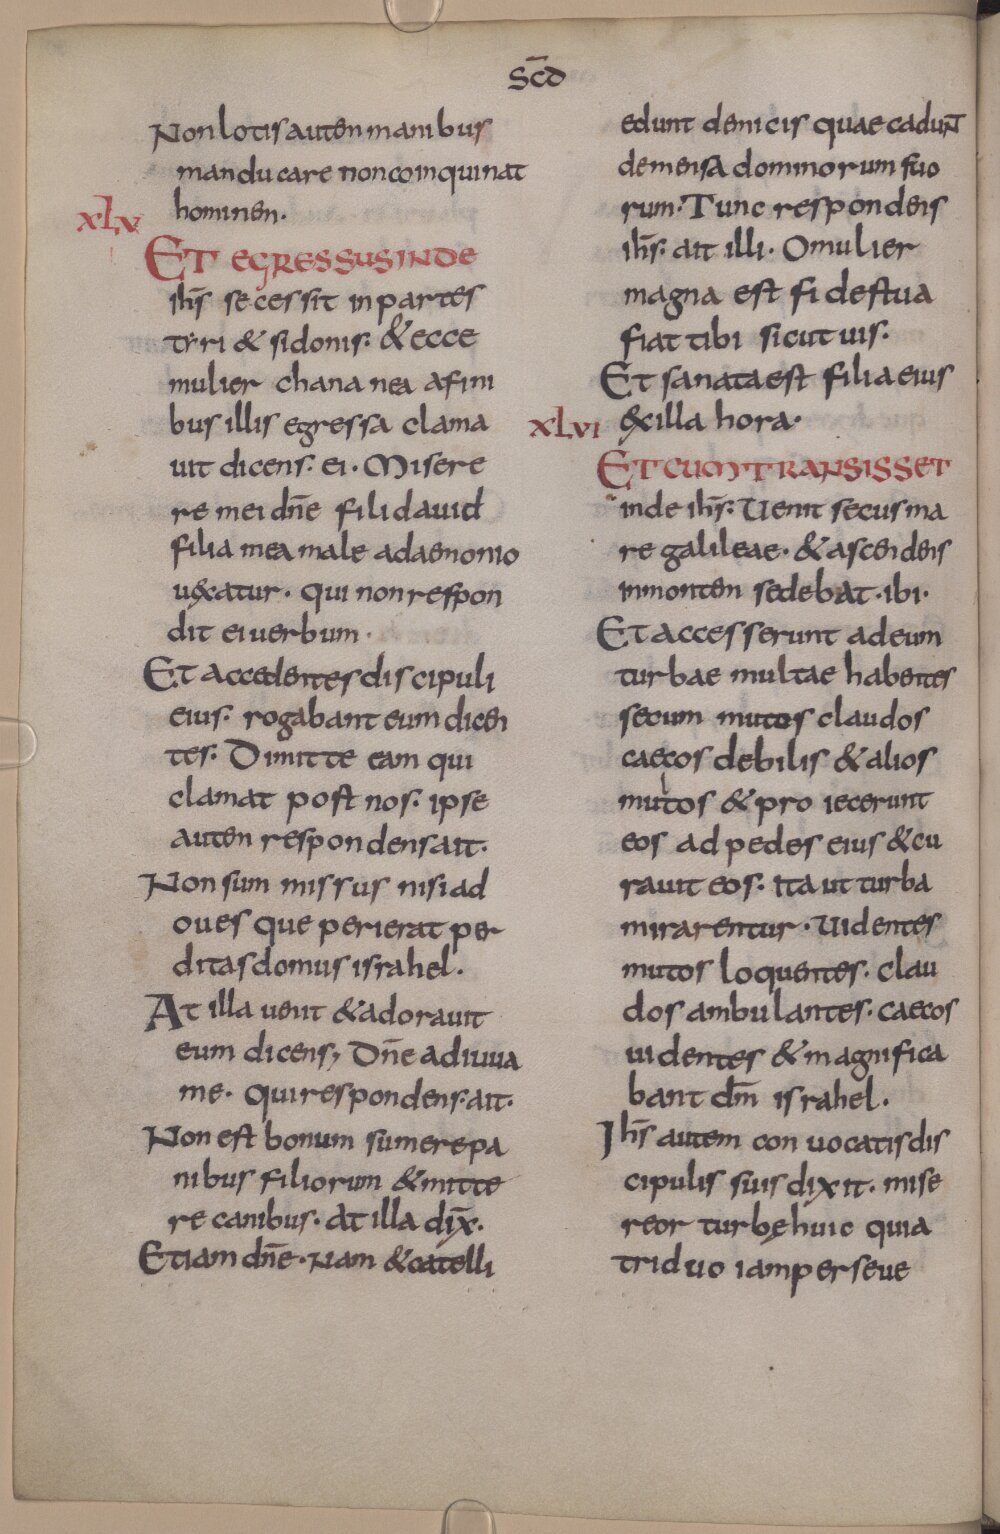 Scd̄
Non lotis autem manibus
manducare non coinquinat
hominem·
XLV
ET EGRESSUS INDE
ih̄s secessit in partes
tyri & sidonis· & ecce
mulier chananea a fini
bus illis egressa clama
uit dicens· ei· Misere
re mei dn̄e fili dauid
filia mea male a daemonio
uexatur· qui non respon
dit ei uerbum·
Et accedentes discipuli
eius· rogabant eum dicen
tes· Dimitte eam qui
clamat post nos· ipse
autem respondens ait·
Non sum missus nisi ad
oues que perierat per
ditas domus israhel·
At illa uenit & adorauit
eum dicens, Dn̄e adiuua
me· qui respondens· ait·
Non est bonum sumere pa
nibus filiorum & mitte
re canibus· at illa dix̄·
Etiam dn̄e· nam & catelli
edunt de micis quae cadunt
de mensa dominorum suo
rum· Tunc respondens
ih̄s· ait illi· O mulier
magna est fides tua
fiat tibi sicut uis·
Et sanata est filia eius
&x illa hora·
XLVI
ET CUM TRANSISSET
inde ih̄s· Uenit secus ma
re galileae· & ascendens
in montem sedebat· ibi·
Et accesserunt ad eum
turbae multae habentes
secum mutos claudos
caecos debilis & alios
mutos & proiecerunt
eos ad pedes eius & cu
rauit eos· ita ut turba
mirarentur· Uidentes
mutos loquentes· clau
dos ambulantes· caecos
uidentes & magnifica
bant dm̄ israhel·
Ih̄s autem conuocatis dis
cipulis suis dixit· mise
reor turbę huic quia
triduo iam perseue